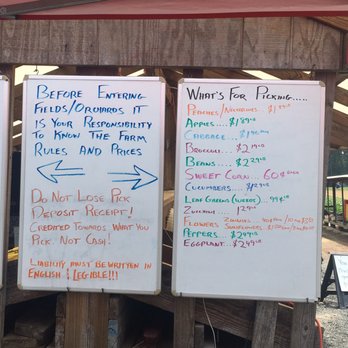 BEFORE ENTERING
FIELDS/ORCHARDS IT
IS YOUR RESPONSIBILITY
TO KNOW THE FARM
RULES AND PRICES
DO NOT LOSE PICK
DEPOSIT RECEIPT!
CREDITED TOWARDS WHAT YOU
PICK. NOT CASH!
LIABILITY MUST BE WRITTEN IN
ENGLISH & LEGIBLE!!!
WHAT'S FOR PICKING.....
PEACHES/NECTARINES
APPLES.... $1.89
CABBAGE...
BROCCOLI.... $2.19
BEANS.... $2.29
SWEET CORN... 60¢
CUCUMBERS... $1.29
LEAF GREENS
ZUCCHINI
FLOWERS ZINNIAS
SUNFLOWERS
PEPPERS.... $2.49
EGGPLANT... $2.49